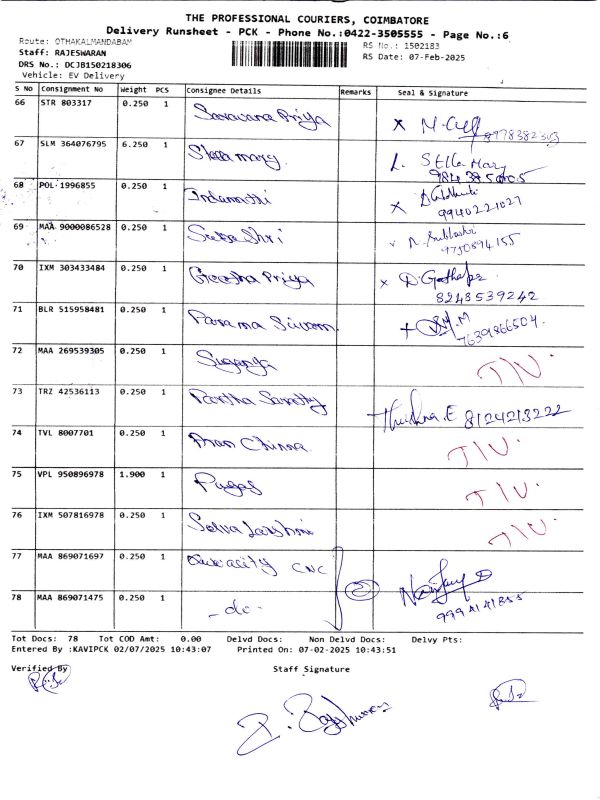 THE PROFESSIONAL COURIERS, COIMBATORE
Delivery Runsheet - PCK - Phone No.:0422-3505555 - Page No.:6
Route: OTHAKALMANDABAM
RS No.: 1502183
Staff: RAJESWARAN
RS Date: 07-Feb-2025
DRS No.: DCJB150218306
Vehicle: EV Delivery
S No Consignment No Weight PCS Consignee Details Remarks Seal & Signature
66 STR 803317 0.250 1 Saravana Priya x
67 SLM 364076795 6.250 1 Stella mary. Stella Mary
68 POL 1996855 0.250 1 Indumathi x
9940221027
69 MAA 9000086528 0.250 1 Suba Shri
9750894155
70 IXM 303433484 0.250 1 Geetha Priya x
8248539242
71 BLR 515958481 0.250 1 Parama Sivam
7639866504.
72 MAA 269539305 0.250 1 Suganya
73 TRZ 42536113 0.250 1 Partha 8124213222
74 TVL 8007701 0.250 1 Chinna
75 VPL 950896978 1.900 1 Pugal
76 IXM 507816978 0.250 1 Selva Lakshmi
77 MAA 869071697 0.250 1 CNC
78 MAA 869071475 0.250 1 - do - 2
Tot Docs: 78 Tot COD Amt: 0.00 Delvd Docs: Non Delvd Docs: Delvy Pts:
Entered By :KAVIPCK 02/07/2025 10:43:07 Printed On: 07-02-2025 10:43:51
Verified By Staff Signature